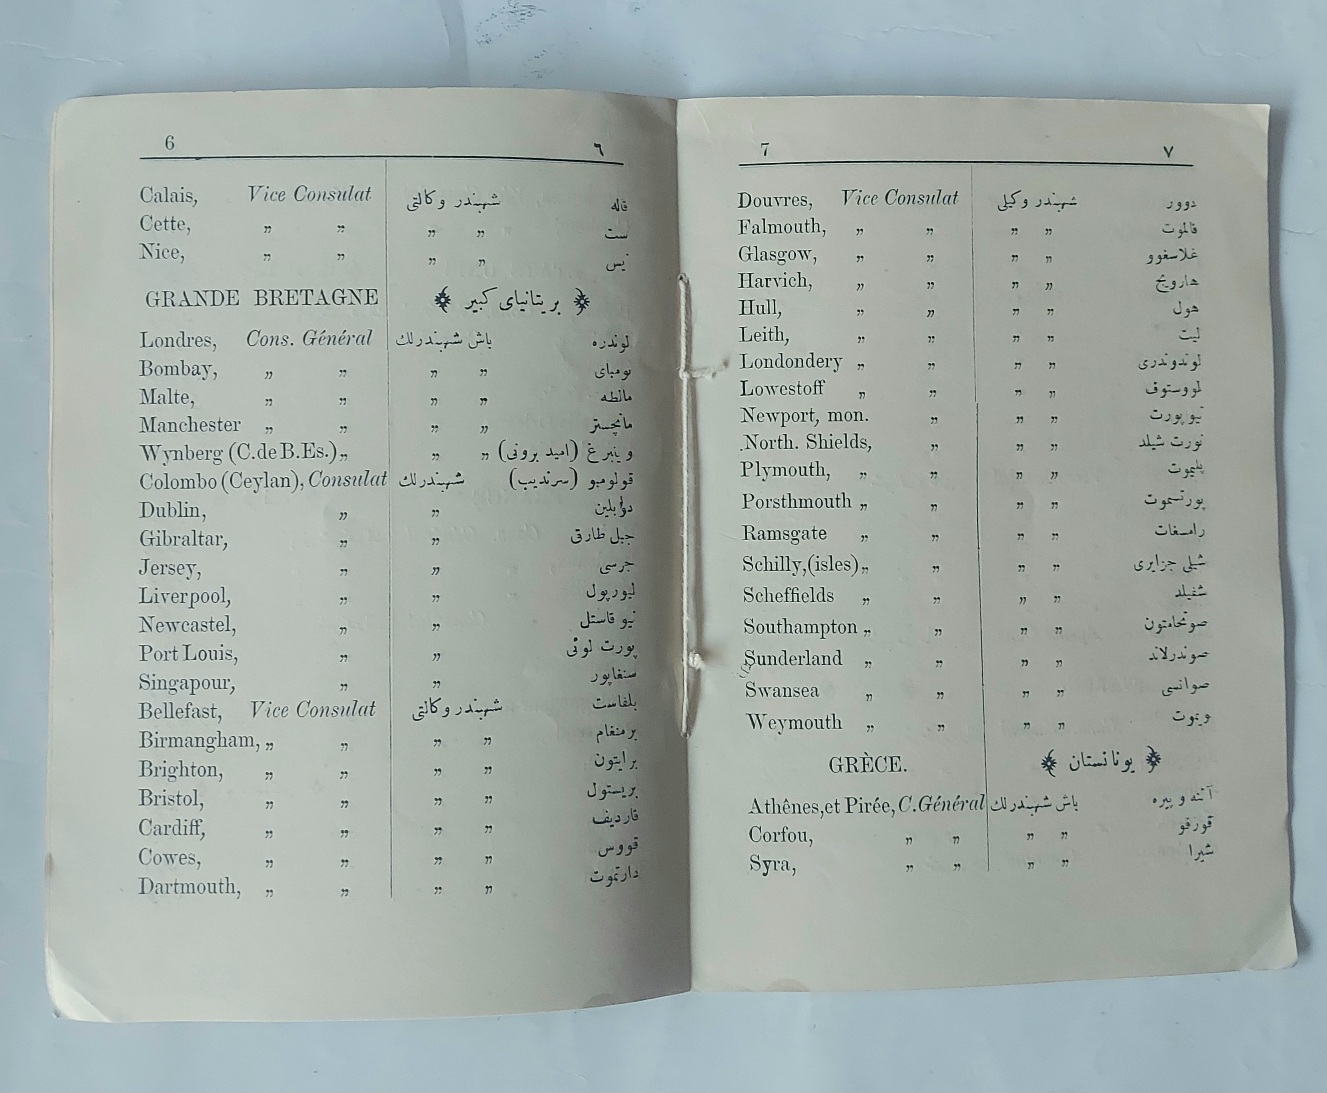 6 ٦
Calais, Vice Consulat شهبندر وكالتی قاله
Cette, „ „ „ „ ست
Nice, „ „ „ „ نيس
GRANDE BRETAGNE بريتانيای كبير
Londres, Cons. Général باش شهبندرلك لوندره
Bombay, „ „ „ „ بومبای
Malte, „ „ „ „ مالطه
Manchester „ „ „ „ مانچستر
Wynberg (C.de B.Es.) „ „ „ وينبرغ (اميد برونی)
Colombo (Ceylan), Consulat شهبندرلك قولومبو (سرنديب)
Dublin, „ „ دوبلين
Gibraltar, „ „ جبل طارق
Jersey, „ „ جرسی
Liverpool, „ „ ليورپول
Newcastel, „ „ نيو قاستل
Port Louis, „ „ پورت لوئی
Singapour, „ „ سنغاپور
Bellefast, Vice Consulat شهبندر وكالتی بلفاست
Birmangham, „ „ „ „ برمنغام
Brighton, „ „ „ „ برايتون
Bristol, „ „ „ „ بريستول
Cardiff, „ „ „ „ قارديف
Cowes, „ „ „ „ قووس
Dartmouth, „ „ „ „ دارتموت
7 ٧
Douvres, Vice Consulat شهبندر وكيلی دوور
Falmouth, „ „ „ „ فالموت
Glasgow, „ „ „ „ غلاسغوو
Harvich, „ „ „ „ هارويچ
Hull, „ „ „ „ هول
Leith, „ „ „ „ ليت
Londondery „ „ „ „ لوندوندری
Lowestoff „ „ „ „ لووستوف
Newport, mon. „ „ „ نيوپورت
North. Shields, „ „ „ نورت شيلد
Plymouth, „ „ „ „ پليموت
Porsthmouth „ „ „ „ پورتسموت
Ramsgate „ „ „ „ رامسغات
Schilly,(isles) „ „ „ „ شيلی جزايری
Scheffields „ „ „ „ شفيلد
Southampton „ „ „ „ صوتحامتون
Sunderland „ „ „ „ صوندرلاند
Swansea „ „ „ „ صوانسی
Weymouth „ „ „ „ ويموت
GRÈCE. يونانستان
Athênes,et Pirée, C.Général باش شهبندرلك آتنه و پيره
Corfou, „ „ „ „ قورفو
Syra, „ „ „ „ شيرا